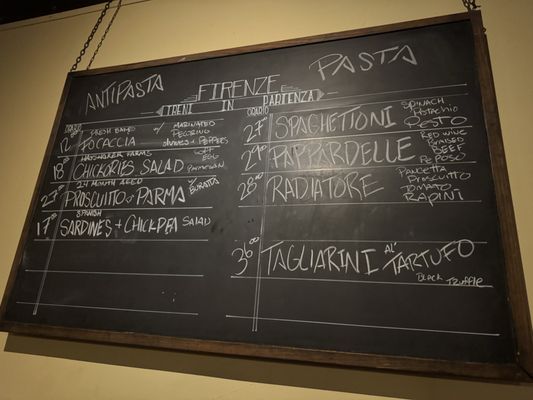 ANTIPASTA
FIRENZE
PASTA
TRENI IN PARTENZA
ORARIO
ORARIO
12 FRESH BAKED FOCACCIA w/ MARINATED PECORINO OLIVES + PEPPERS
18 CHICKORIES SALAD SOFT EGG PARMESAN
24 MONTH AGED PROSCUITTO di PARMA w/ BURATTA
17 SPANISH SARDINES + CHICKPEA SALAD
27 SPAGHETTONI SPINACH PISTACHIO PESTO
29 PAPPARDELLE RED WINE BRAISED BEEF PEPOSO
28 RADIATORE PANCETTA PROSCUITTO TOMATO RAPINI
36 TAGLIARINI AL' TARTUFO
BLACK TRUFFLE